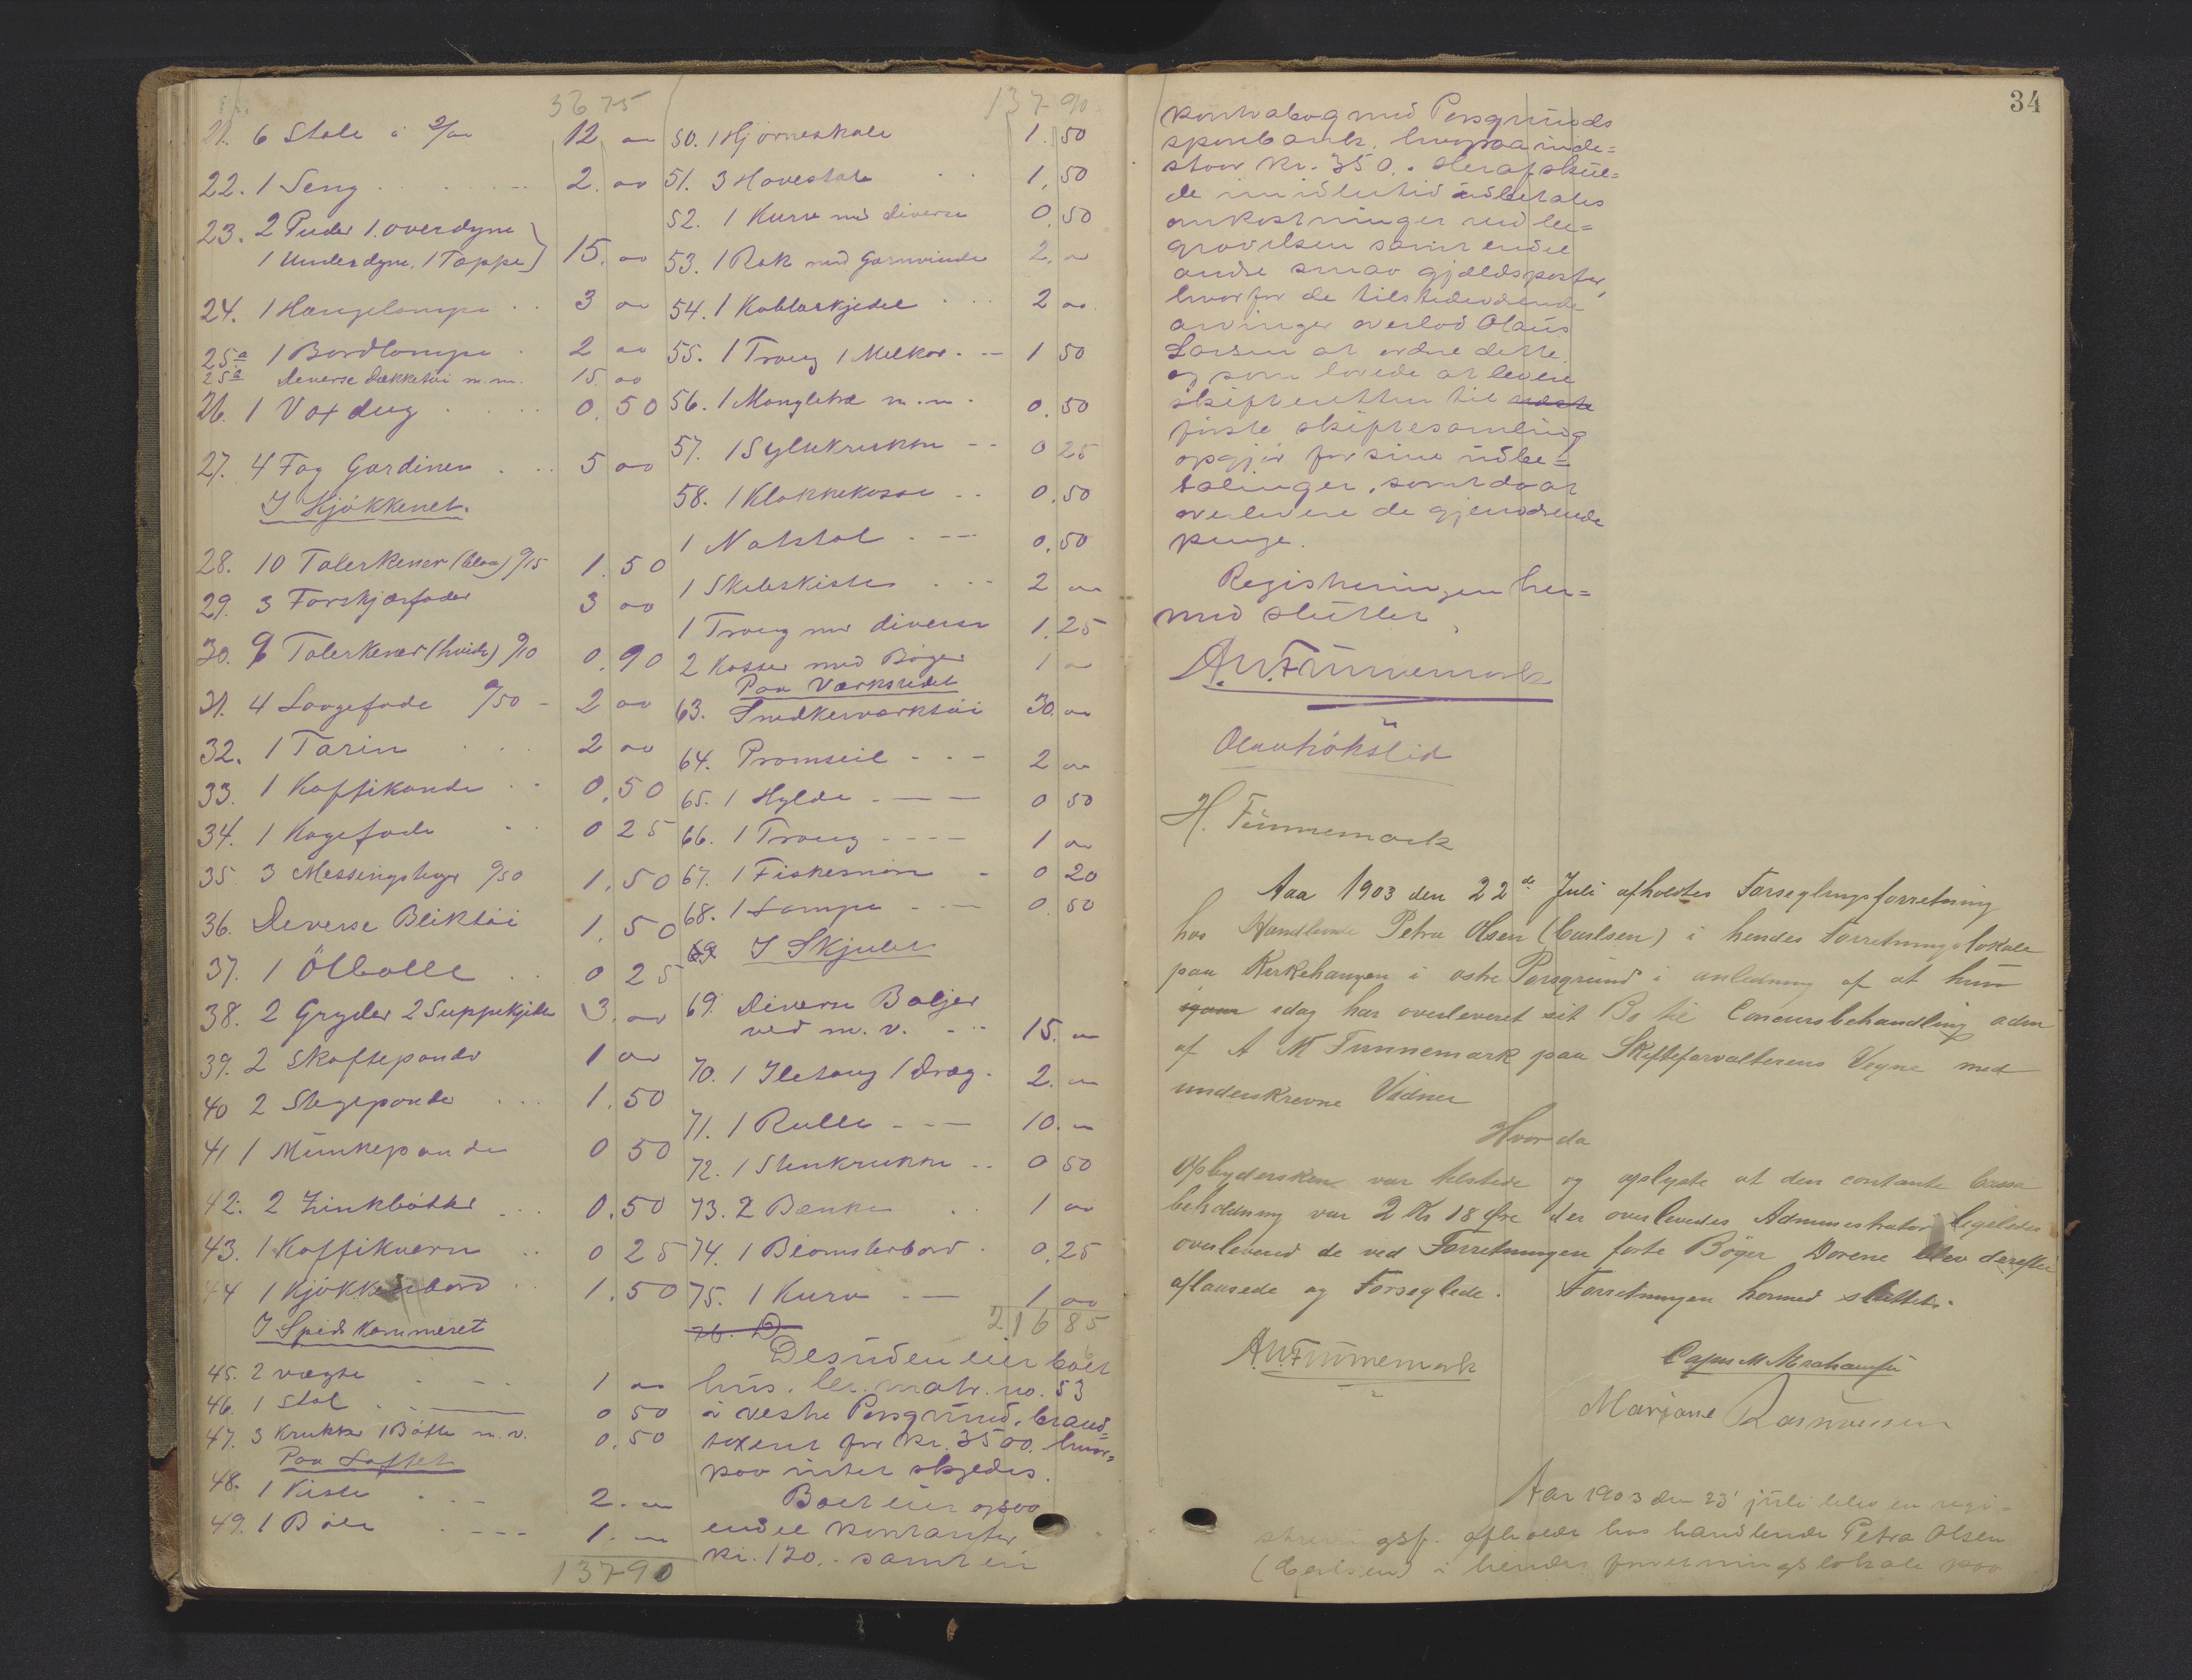 36 75
21. 6 Stole á 2/oo 12 oo
22. 1 Seng 2. oo
23. 2 Puder 1. overdyne
1 Underdyne, 1 Tæppe 15. oo
24. 1 Hængelampe 3 oo
25a 1 Bordlampe 2 oo
25a Deverse Dækketøi m.m. 15. oo
26. 1 Voxdug 0. 50
27. 4 Fag Gardiner 5 oo
I Kjøkkenet.
28. 10 Talerkener (blaa) 0/15 1. 50
29. 3 Forskjærfader 3 oo
30. 9 Talerkener (hvide) 0/10 0. 90
31. 4 Laagefade 0/50 2 oo
32. 1 Tarin 2 oo
33. 1 Kaffikande 0. 50
34. 1 Kagefade 0 25
35 3 Messingstager 0/50 1. 50
36. Deverse Bliktøi 1. 50
37. 1 Ölbolle 0 25
38. 2 Gryder 2 Suppekjedler 3. oo
39. 2 Skaftepander 1 oo
40 2 Stegepander 1. 50
41 1 Munkepande 0 50
42. 2 Zinkbøtter 0. 50
43. 1 Kaffikvern 0 25
44 1 Kjøkkenbord 1. 50
I Spiskammeret
45. 2 vægte 1 oo
46. 1 Stol 0 50
47. 3 Krukker 1 Bøtte m.v. 0. 50
Paa Loftet
48. 1 Kiste 2. oo
49. 1 Båli 1. oo
137-90
137-90
50. 1 Hjørneskab 1. 50
51. 3 Havestole 1. 50
52. 1 Kurv med diverse 0. 50
53. 1 Rok med Garnvinde 2. oo
54. 1 Kobberkjedel 2 oo
55. 1 Traug 1 Melkar 1 50
56. 1 Mangletræ m.m. 0. 50
57. 1 Syltekrukke 0 25
58. 1 Klokkekasse 0. 50
1 Natstol 0. 50
1 Skibskiste 2 oo
1 Traug med diverse 1. 25
2 Kasser med Bøger 1 oo
Paa Værkstedet
63. Snedkerværktøi 30. oo
64. Pramseil 2 oo
65. 1 Hylde 0 50
66. 1 Traug 1 oo
67. 1 Fiskesnøre 0 20
68. 1 Lampe 0. 50
69 I Skjulet
69. Diverse Baljer
ved m. v. 15. oo
70. 1 Iletaug 1 Dræg 2. oo
71. 1 Rulle 10. oo
72. 1 Stenkrukke 0 50
73. 2 Bænke 1 oo
74. 1 Blomsterbord 0. 25
75. 1 Kurv 1 oo
76. D 216 85
Desuden eier boet
hus, br. matr. no. 53
i vestre Porsgrund, brand=
taxeret for Kr. 3500. hvor=
paa intet skyldes.
Boet eier ogsaa
endel kontanter
kr. 120. samt en
34
kontrabog med Porsgrunds
sparebank, hvorpaa inde=
staar kr. 350. Heraf skul=
de imidlertid udbetales
omkostninger ved be=
gravelsen samt endel
andre smaa gjældsposter,
hvorfor de tilstedeværende
arvinger overlod Olaus
Larsen at ordne dette
og som lovede at levere
skifteretten til næste
første skiftesamling
opgjør for sine udbe=
talinger, samt da at
overlevere de gjenværende
penge.
Registreringen her=
med sluttet,
A.M. Funnemark
H. Funnemark
Aaa 1903 den 22de Juli afholdtes Forseglingsforretning
hos Handlende Petra Olsen (Carlsen) i hendes Forretningslokale
paa Kirkehaugen i østre Porsgrund i anledning af at hun
igaar idag har overleveret sit Bo til Concursbehandling adm
af A M Funnemark paa Skifteforvalterens Vegne med
underskrevne Vidner
Hvor da
Opbydersken var tilstede og oplyste at den contante Cassa
beholdning var 2 Kr 18 Øre der overlevedes Administrator ligeledes
overleverid de ved Forretningen førte Bøger Dørene blev derefter
aflaasede og Forseglede. Forretningen hermed sluttet.
A.M. Funnemark
Marjane Rasmussen
Aar 1903 den 23' juli blev en regi=
streringsf. afholdt hos handlende Petra Olsen
(Carlsen) i hendes forretningslokale paa